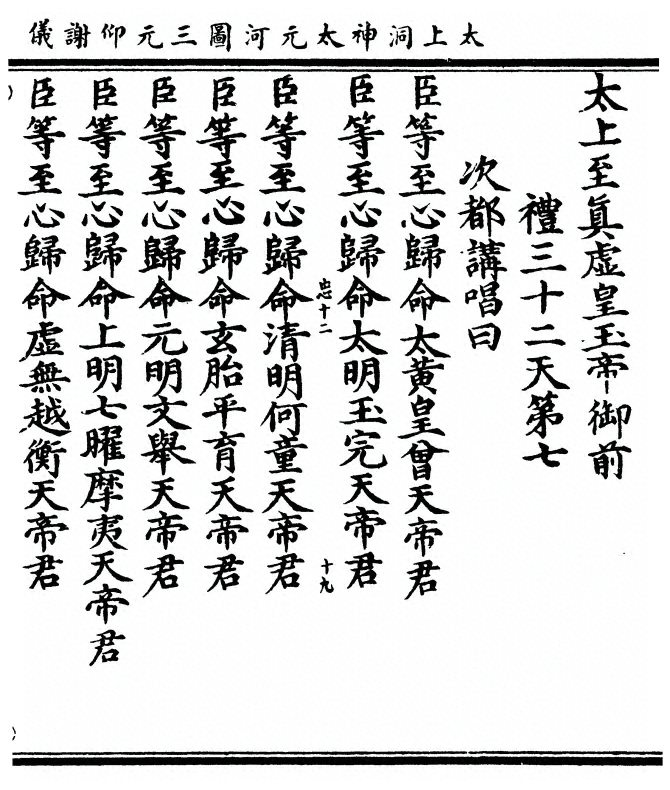 太上洞神太元河圖三元仰謝儀
太上至眞虛皇玉帝御前
禮三十二天第七
次都講唱曰
臣等至心歸命太黃皇曾天帝君
臣等至心歸命太明玉完天帝君
忠十二
十九
臣等至心歸命清明何童天帝君
臣等至心歸命玄胎平育天帝君
臣等至心歸命元明文舉天帝君
臣等至心歸命上明七曜摩夷天帝君
臣等至心歸命虛無越衡天帝君